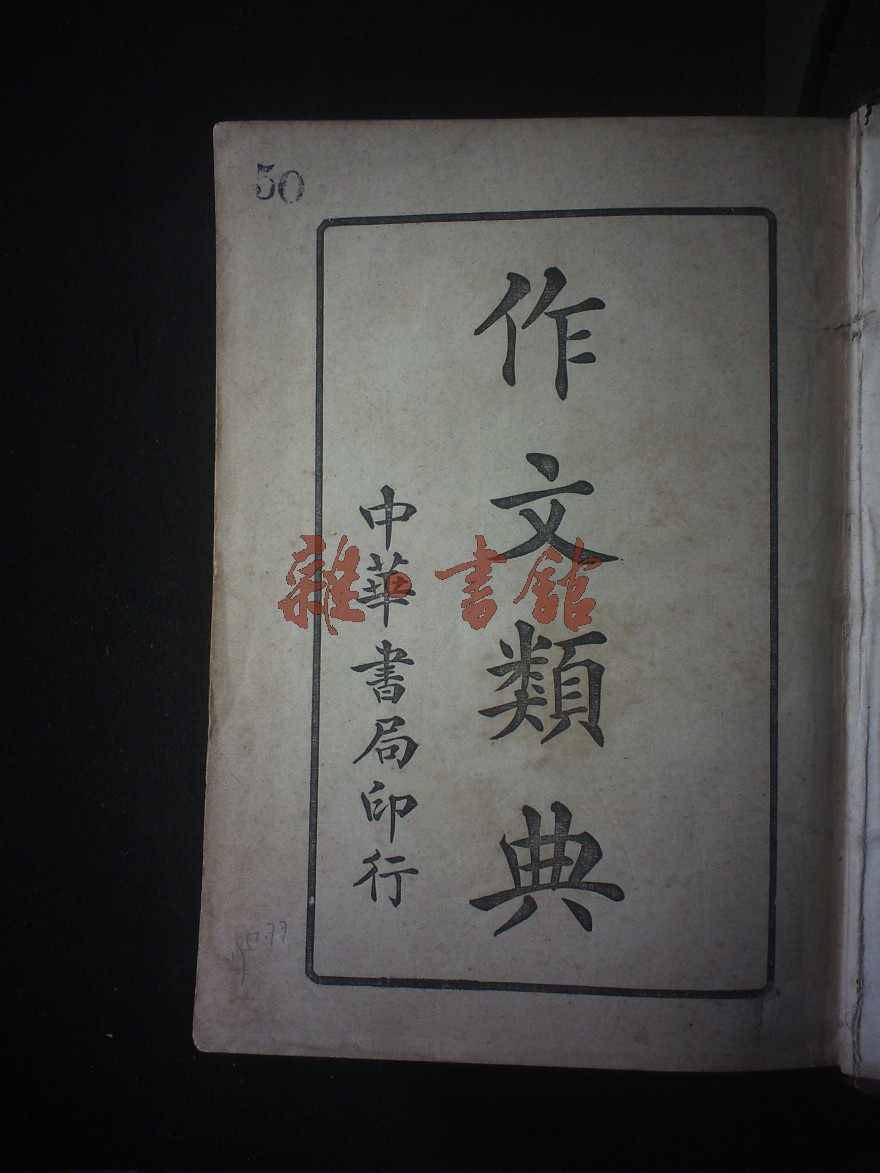 50
作文類典
中華書局印行
雜之書館